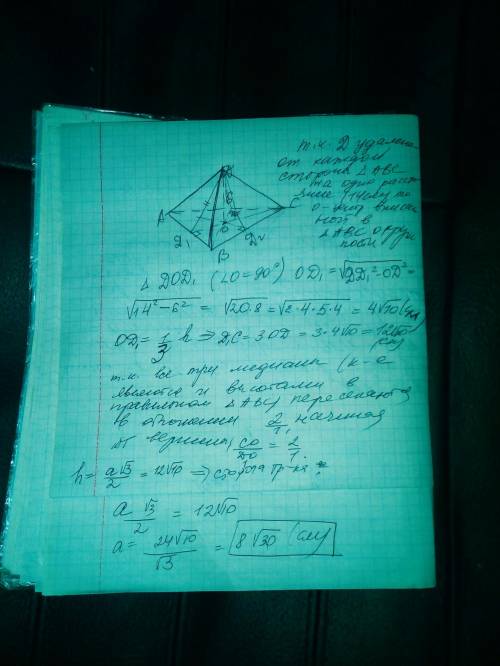 т.к. D удалена
от каждой
стороны △ABC
на одно расст
14см, то
O-центр вписан
ной в
△ABC окруж
ности
D
A
C
B
D₁
D₂
6
O
△ DOD₁ (∠O=90°) OD₁=√DD₁²-OD²=
√14²-6² = √20·8=√2·4·5·4 = 4√10(см)
OD₁=1/3 h ⇒ D₁C=3OD=3·4√10=12√10
(см)
т.к. все три медианы (к-е
являются и высотами в
правильном △ABC) пересекаются
в отношении 2/1, начиная
от вершины, CO/DO=2/1.
h= a√3/2 =12√10 ⇒ сторона тр-ка:
a√3/2 = 12√10
a= 24√10/√3 = 8√30 (см)